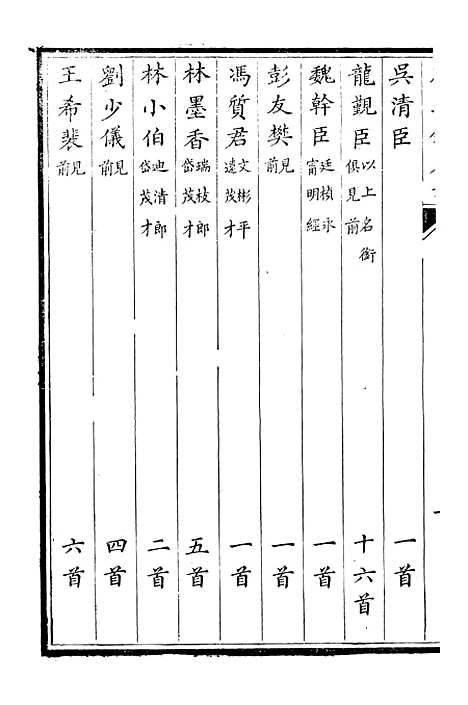 吳清臣 一首
龍覲臣 以上名銜俱見前 十六首
魏幹臣 廷楨永甯明經 一首
彭友樊 見前 一首
馮質君 文彬平遠茂才 一首
林墨香 瑞枝郎岱茂才 五首
林小伯 迪清郎岱茂才 二首
劉少儀 見前 四首
王希裴 見前 六首